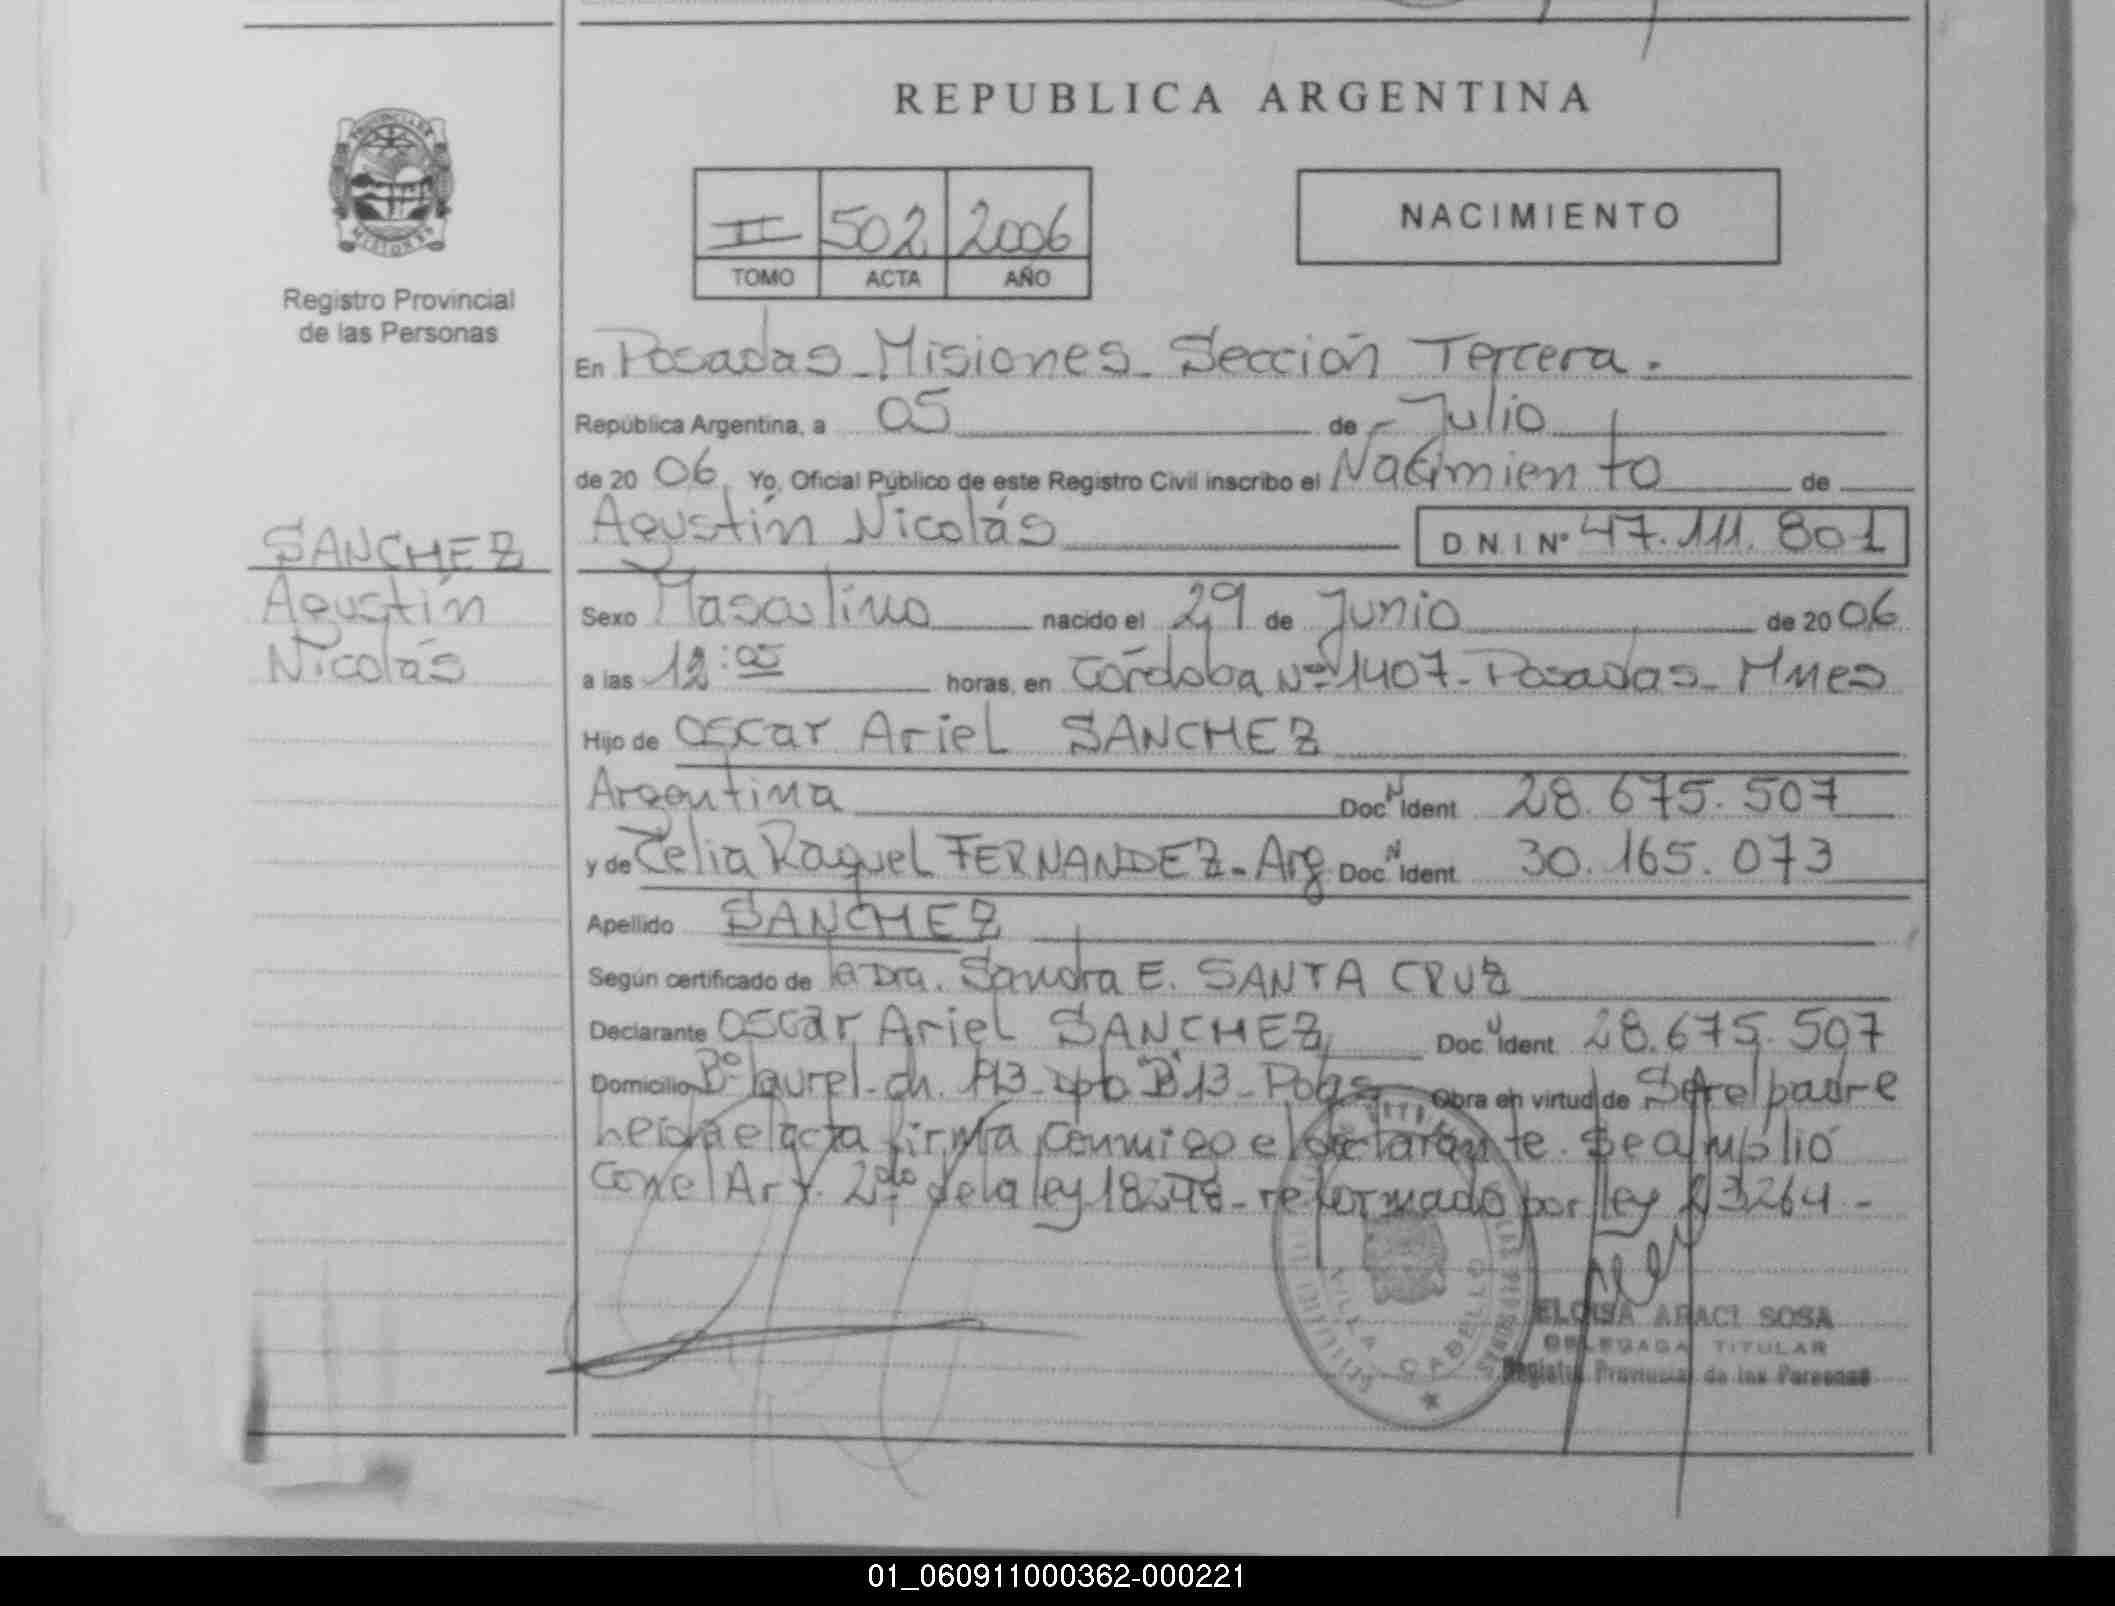 REPUBLICA ARGENTINA
PROVINCIA DE
MISIONES
Registro Provincial
de las Personas
II 502 2006
TOMO ACTA AÑO
NACIMIENTO
En Posadas - Misiones - Sección Tercera.
República Argentina, a 05 de Julio
de 2006 Yo, Oficial Público de este Registro Civil inscribo el Nacimiento de
SANCHEZ
Agustín
Nicolás
Agustín Nicolás D N I Nº 47.111.801
Sexo Masculino nacido el 29 de Junio de 2006
a las 12:05 horas, en Córdoba Nº 1407 - Posadas - Mnes
Hijo de Oscar Ariel SANCHEZ
Argentina Doc. N Ident 28.675.507
y de Celia Raquel FERNANDEZ - Arg. Doc. N Ident 30.165.073
Apellido SANCHEZ
Según certificado de la Dra. Sandra E. SANTA CRUZ
Declarante Oscar Ariel SANCHEZ Doc. N Ident 28.675.507
Domicilio Bº laurel - ch. 113 - dpto B 13 - Pdas Obra en virtud de Ser el padre
Leida el acta firma conmigo el declarante. Se amplió
con el Art. 2do de la ley 18248 - reformado por ley 23264 -
VILLA CABELLO
ELOISA ARACI SOSA
DELEGADA TITULAR
Registro Provincial de las Personas
01_060911000362-000221